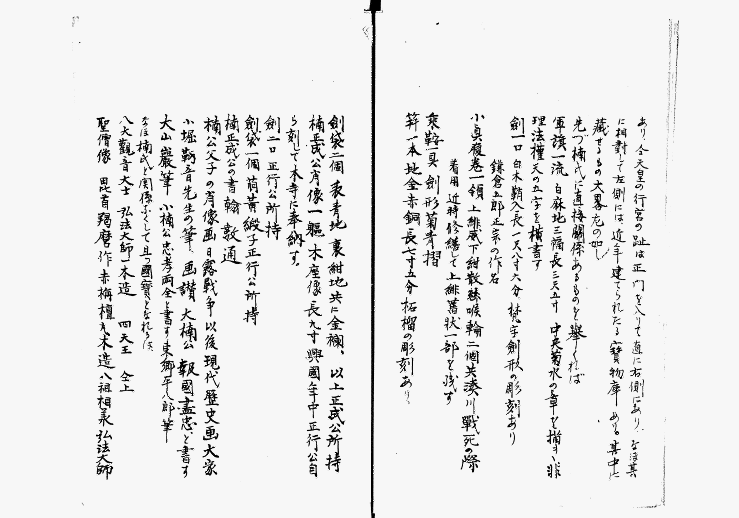 あり、今天皇の行宮の趾は正門を入りて直に右側にあり、なほ其
に相對して左側には、近年建てられたる寳物庫あり。其中に
藏せるもの大畧左の如し
先づ楠氏に直接關係あるものを擧ぐれば
軍旗一流 白麻地三幅長三天五寸 中央菊水の章を描き、非
理法權天の五字を横書す
劍一口 白木鞘入長一尺八寸六分、梵字劍形の彫刻あり
鎌倉五郎正宗の作名
小具腹卷一領 上緋威下紺散絲喉輪二個共湊川戰死の際
着用 近時修繕して上緋舊狀一部を殘す
乘鞍一具 劍形菊青摺
笄一本 地金赤銅長七寸五分柘榴の彫刻あり。
劍袋二個 表青地裏紺地共に金襴、以上正成公所持
楠正成公肖像一軀 木座像長九寸興國年中正行公自
ら刻して本寺に奉納す。
劍二口 正行公所持
劍袋一個 萠黄緞子正行公所持
楠正成公の書翰 數通
楠公父子の肖像画 日露戰争以後現代歴史画大家
小堀鞆音先生の筆、画讃 大楠公 報國盡忠と書す
大山巖筆 小楠公忠孝両全と書す東郷平八郎筆
なほ楠氏と關係なくして且つ國寳となれるは、
八大觀音大士 弘法大師一木造 四天王 仝上
聖僧像 毘首羯磨作赤栴檀丸木造八祖相承弘法大師